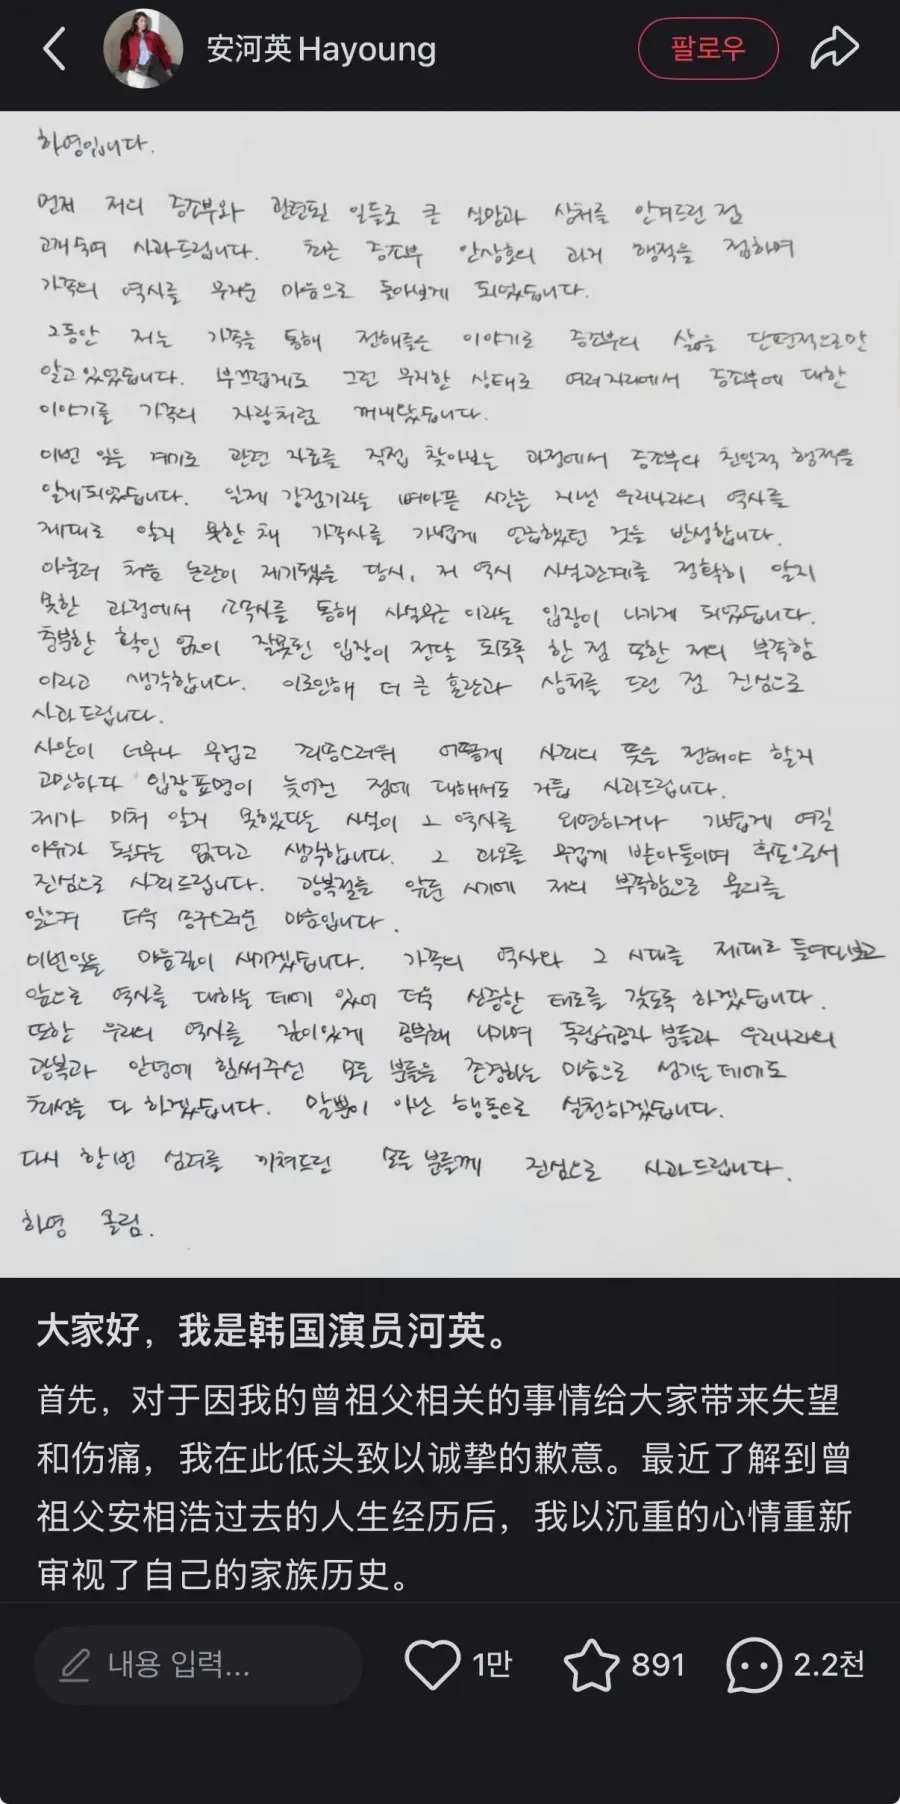 安河英Hayoung
팔로우
하영입니다.
먼저 저의 증조부와 관련된 일들로 큰 실망과 상처를 안겨드린 점
고개숙여 사과드립니다. 최근 증조부 안상호의 과거 행적을 접하며
가족의 역사를 무거운 마음으로 돌아보게 되었습니다.
그동안 저는 가족을 통해 전해들은 이야기로 증조부의 삶을 단편적으로만
알고있었습니다. 부끄럽게도 그런 무지한 상태로 여러자리에서 증조부에 대한
이야기를 가족의 자랑처럼 꺼내왔습니다.
이번 일을 계기로 관련 자료를 직접 찾아보는 과정에서 증조부의 친일적 행적을
알게되었습니다. 일제 강점기라는 뼈아픈 시간을 지낸 우리나라의 역사를
제대로 알지 못한 채 가족사를 가볍게 언급했던 것을 반성합니다.
아울러 처음 논란이 제기됐을 당시, 저 역시 사실관계를 정확히 알지
못한 과정에서 소속사를 통해 사실무근이라는 입장이 나가게 되었습니다.
충분한 확인 없이 잘못된 입장이 전달 되도록 한 점 또한 저의 부족함
이라고 생각합니다. 이로인해 더 큰 혼란과 상처를 드린 점 진심으로
사과드립니다.
사안이 너무나 무겁고 죄송스러워 어떻게 사죄의 뜻을 전해야 할지
고민하다 입장표명이 늦어진 점에 대해서도 거듭 사과드립니다.
제가 미처 알지 못했다는 사실이 그 역사를 외면하거나 가볍게 여길
이유가 될수는 없다고 생각합니다. 그 과오를 무겁게 받아들이며 후손으로서
진심으로 사죄드립니다. 광복절을 앞둔 시기에 저의 부족함으로 물의를
일으켜 더욱 송구스러운 마음입니다.
이번일을 마음깊이 새기겠습니다. 가족의 역사와 그 시대를 제대로 들여다보고
앞으로 역사를 대하는 데에 있어 더욱 신중한 태도를 갖도록 하겠습니다.
또한 우리의 역사를 깊이있게 공부해 나가며 독립유공자 분들과 우리나라의
광복과 안녕에 힘써주신 모든 분들을 존경하는 마음으로 섬기는데에도
최선을 다 하겠습니다. 말뿐이 아닌 행동으로 실천하겠습니다.
다시 한번 심려를 끼쳐드린 모든 분들께 진심으로 사과드립니다.
하영 올림.
大家好，我是韩国演员河英。
首先，对于因我的曾祖父相关的事情给大家带来失望
和伤痛，我在此低头致以诚挚的歉意。最近了解到曾
祖父安相浩过去的人生经历后，我以沉重的心情重新
审视了自己的家族历史。
내용 입력...
1만
891
2.2천